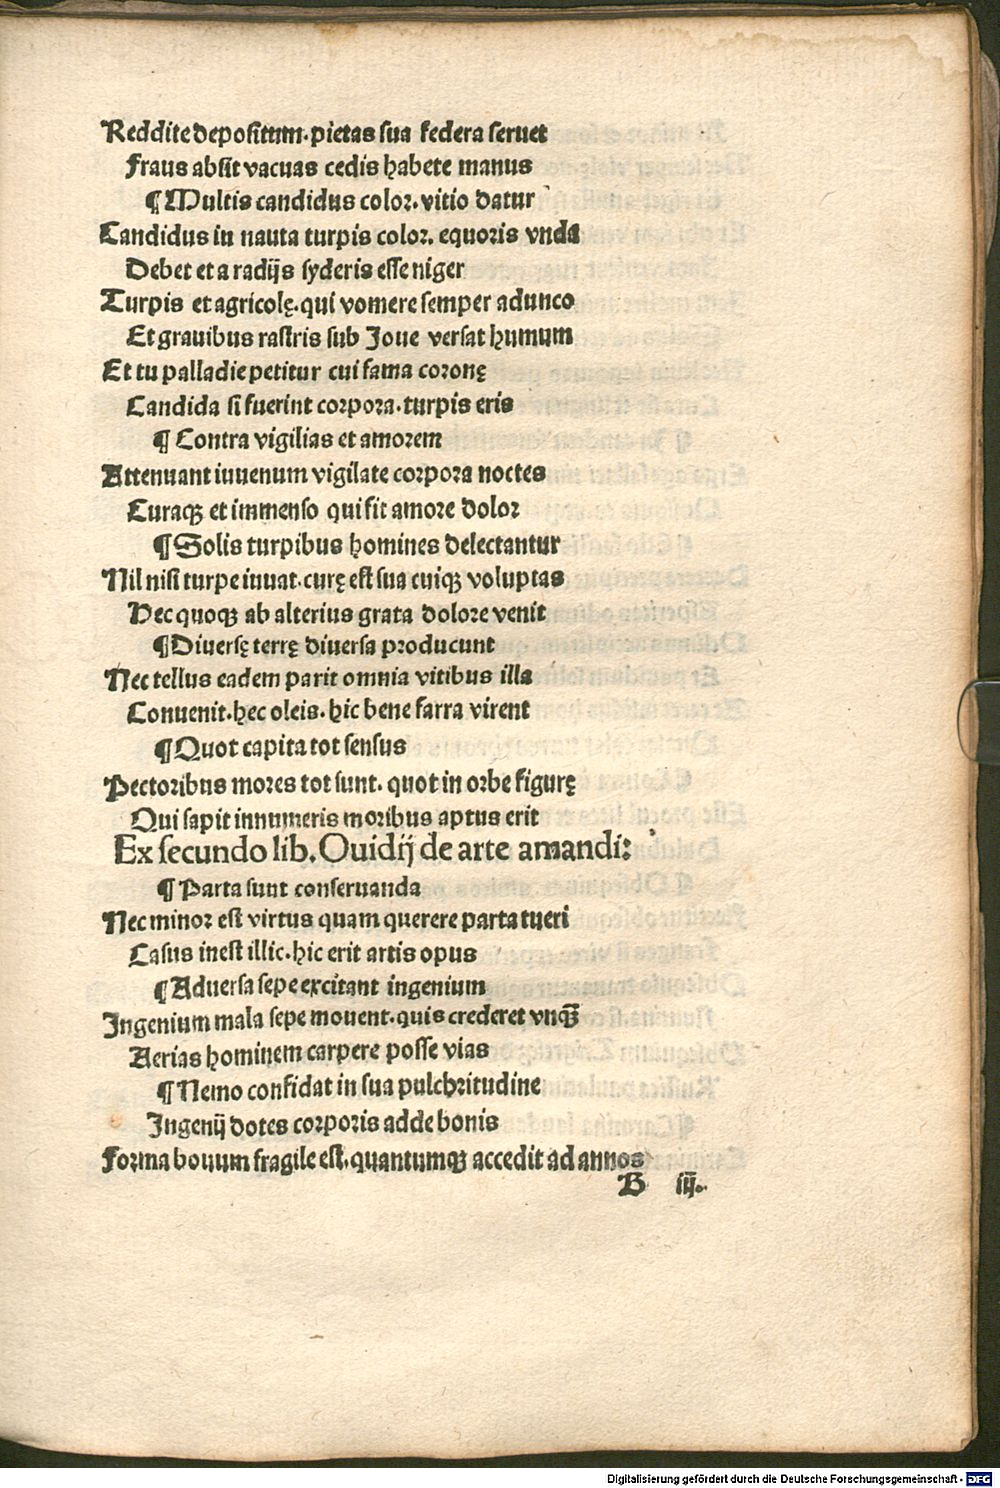 Reddite depositum. pietas sua federa seruet
Fraus absit vacuas cedis habete manus
¶ Multis candidus color. vitio datur
Candidus in nauta turpis color. equoris vnda
Debet et a radijs syderis esse niger
Turpis et agricolę. qui vomere semper adunco
Et grauibus rastris sub Joue versat humum
Et tu palladie petitur cui fama coronę
Candida si fuerint corpora. turpis eris
¶ Contra vigilias et amorem
Attenuant iuuenum vigilate corpora noctes
Curaqꝫ et immenso qui fit amore dolor
¶ Solis turpibus homines delectantur
Nil nisi turpe iuuat. curę est sua cuiqꝫ voluptas
Hec quoqꝫ ab alterius grata dolore venit
¶ Diuersę terrę diuersa producunt
Nec tellus eadem parit omnia vitibus illa
Conuenit. hec oleis. hic bene farra virent
¶ Quot capita tot sensus
Pectoribus mores tot sunt. quot in orbe figurę
Qui sapit innumeris moribus aptus erit
Ex secundo lib. Ouidij de arte amandi:
¶ Parta sunt conseruanda
Nec minor est virtus quam querere parta tueri
Casus inest illic. hic erit artis opus
¶ Aduersa sepe excitant ingenium
Ingenium mala sepe mouent. quis crederet vnqꝫ̄
Aerias hominem carpere posse vias
¶ Nemo confidat in sua pulchritudine
Ingenij dotes corporis adde bonis
Forma bouum fragile est. quantumqꝫ accedit ad annos
B iij.
Digitalisierung gefördert durch die Deutsche Forschungsgemeinschaft - DFG